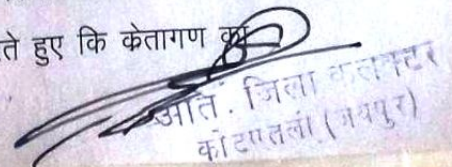 ते हुए कि केतागण का
अति. जिला कलक्टर
कोटपूतली (जयपुर)